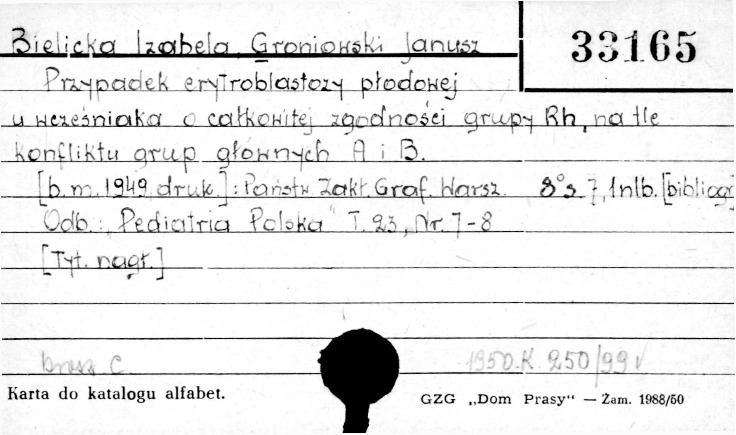 33165
Bielicka Izabela, Groniowski Janusz
Przypadek erytroblastozy płodowej
u wcześniaka o całkowitej zgodności grupy Rh, na tle
konfliktu grup głównych A i B.
[b.m. 1949, druk.]: Państw. Zakł. Graf. Warsz. 8° s. 7, 1nlb. [bibliogr
Odb.: „Pediatria Polska" T. 23, Nr. 7-8
[Tyt. nagł.]
brosz C. 1950.K. 250/99
Karta do katalogu alfabet.
GZG „Dom Prasy" — Zam. 1988/50